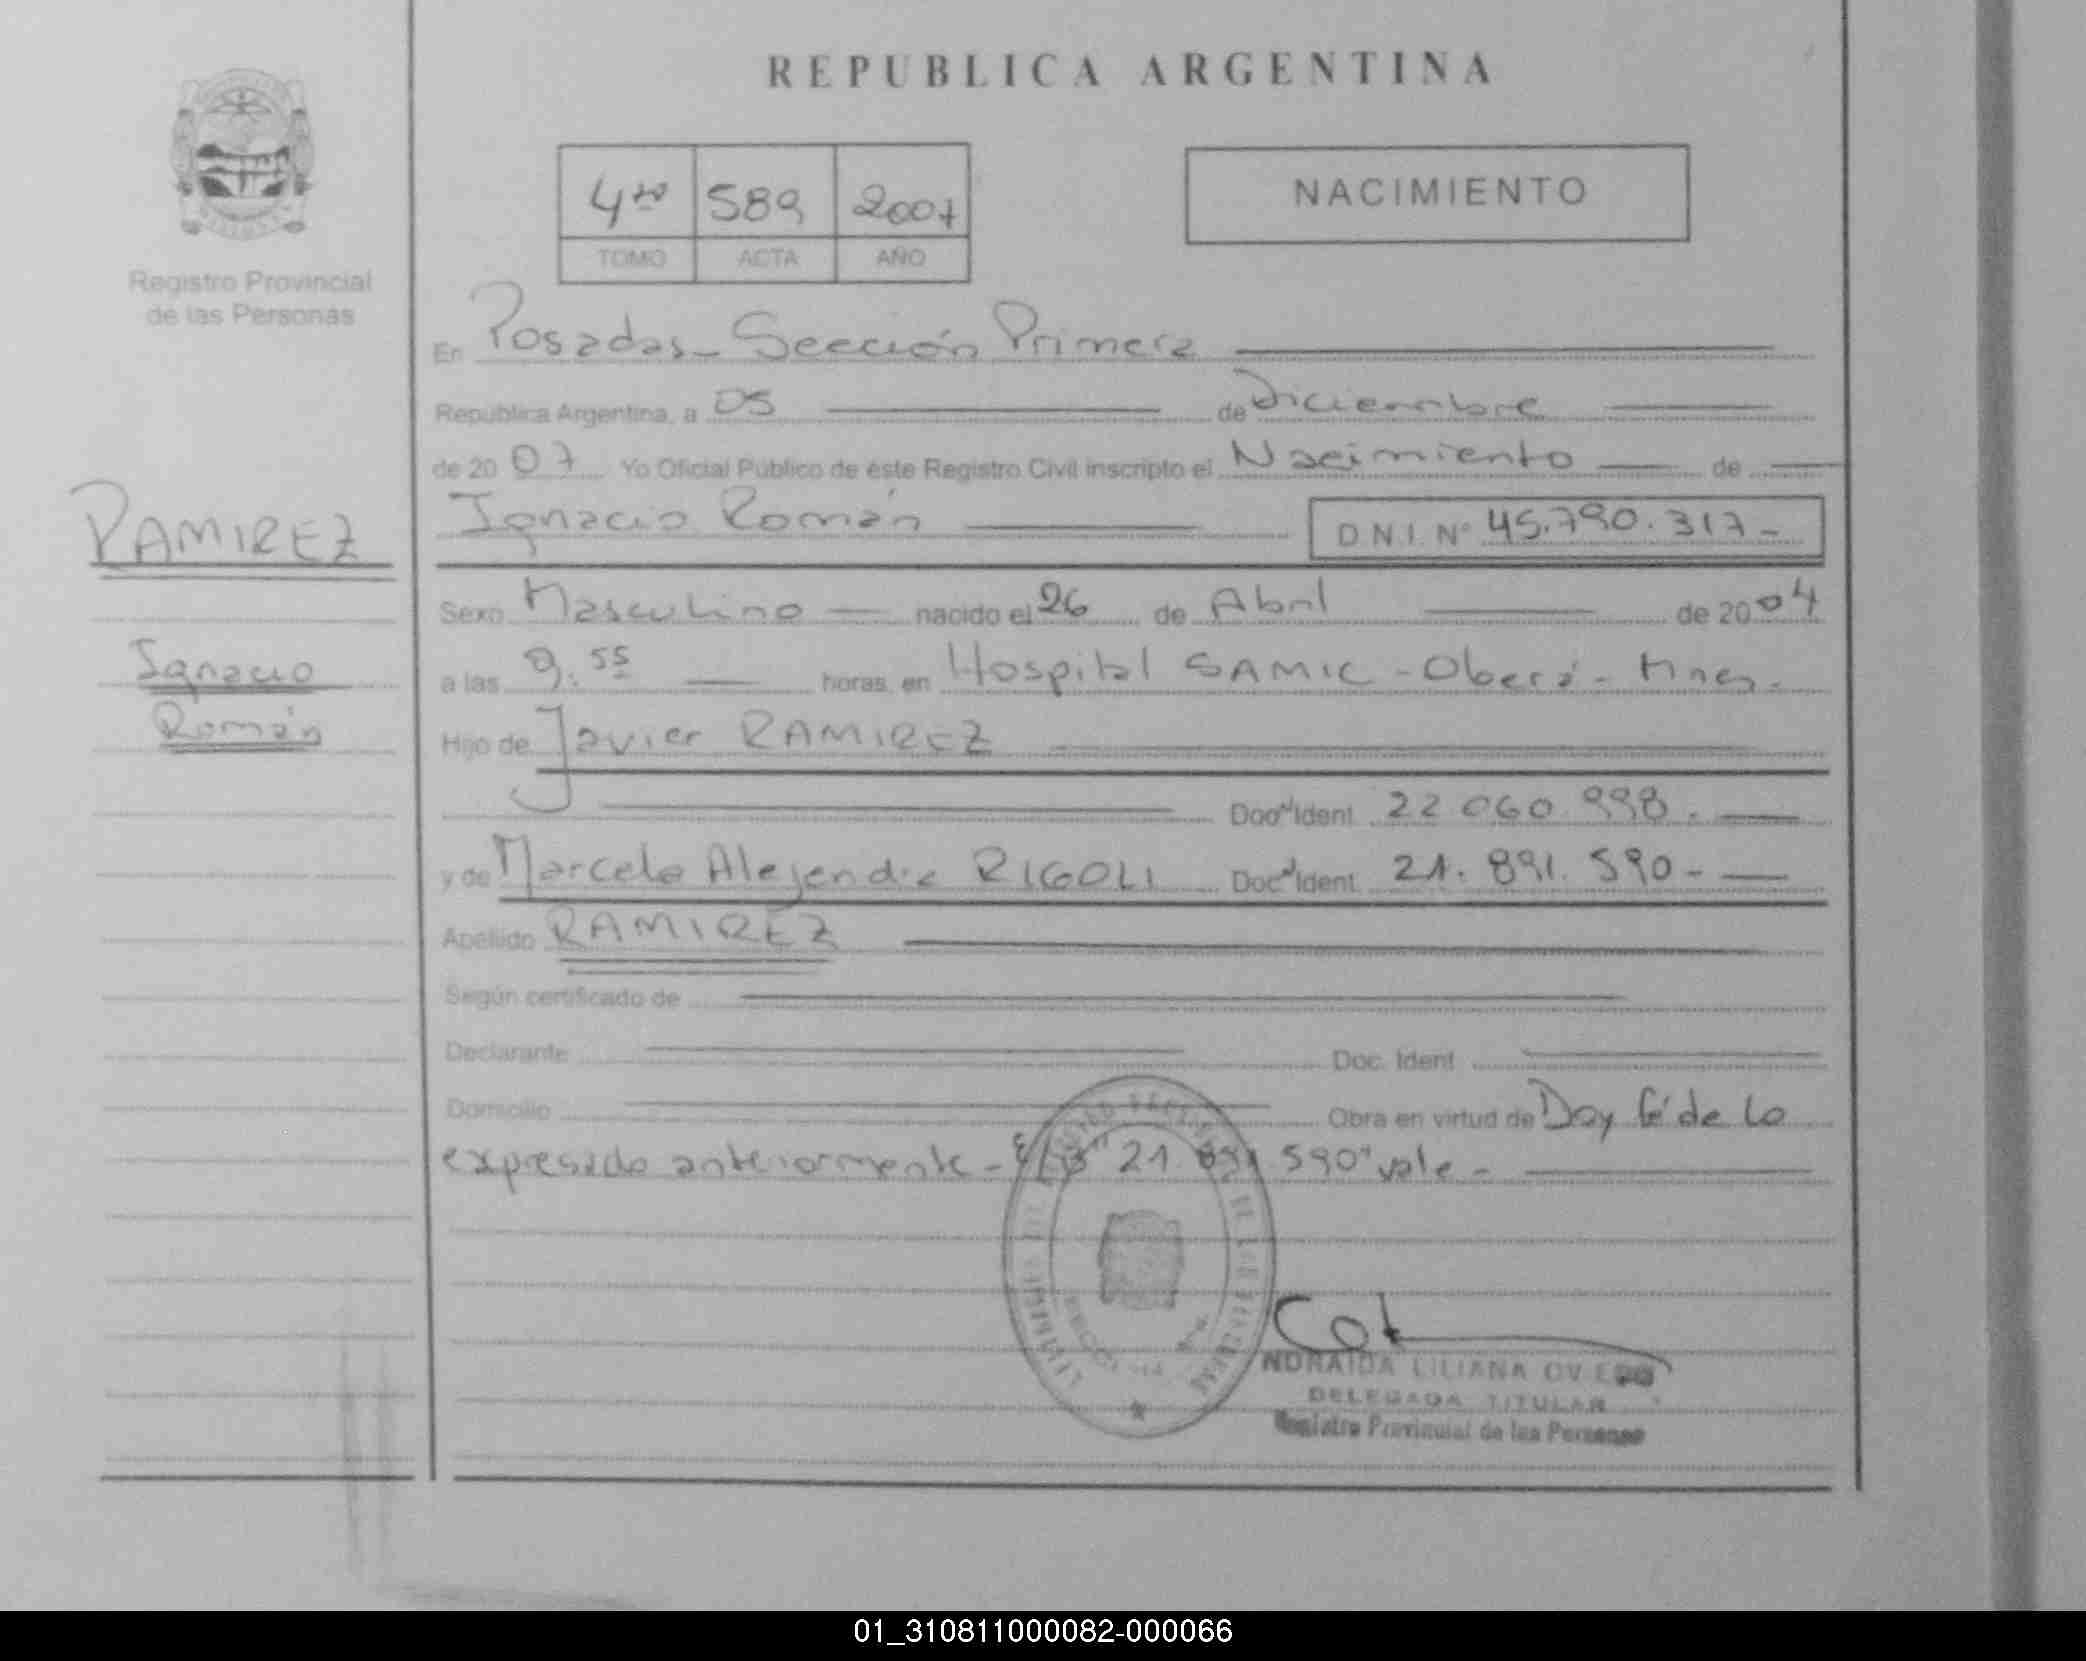 REPUBLICA ARGENTINA
4to 589 2007
TOMO ACTA AÑO
NACIMIENTO
Registro Provincial
de las Personas
En Posadas - Sección Primera
Republica Argentina, a 05 de Diciembre
de 2007 Yo Oficial Público de éste Registro Civil inscripto el Nacimiento de
RAMIREZ
Ignacio Román D.N.I. Nº 45.790.317-
Sexo Masculino nacido el 26 de Abril de 2004
Ignacio
a las 9:55 horas, en Hospital SAMIC - Oberá - Mnes.
Román
Hijo de Javier RAMIREZ
Doc Ident. 22 060 998.
y de Marcela Alejandra RIGOLI Doc Ident. 21. 891. 590-
Apellido RAMIREZ
Según certificado de
Declarante Doc. Ident
Domicilio Obra en virtud de Doy fé de lo
expresado anteriormente - "21. 891. 590" vale -
LILIANA OVIEDO
DELEGADA TITULAR
Registro Provincial de las Personas
01_310811000082-000066